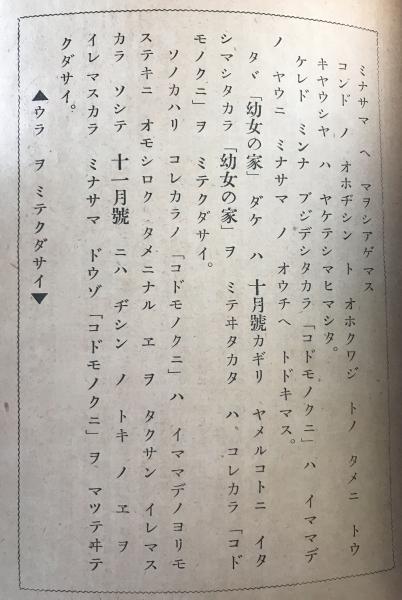 ミナサマ ヘ マヲシアゲマス
コンド ノ オホヂシン ト オホクワジ トノ タメニ トウ
キヤウシヤ ハ ヤケテシマヒマシタ。
ケレド ミンナ ブジデシタカラ「コドモノクニ」ハ イママデ
ノ ヤウニ ミナサマ ノ オウチヘ トドキマス。
タヾ「幼女の家」ダケ ハ 十月號カギリ ヤメルコトニ イタ
シマシタカラ「幼女の家」ヲ ミテヰタカタ ハ、コレカラ「コド
モノクニ」ヲ ミテクダサイ。
ソノカハリ コレカラノ「コドモノクニ」ハ イママデノヨリモ
ステキニ オモシロク タメニナル ヱ ヲ タクサン イレマス
カラ ソシテ 十一月號 ニハ ヂシン ノ トキ ノ ヱ ヲ
イレマスカラ ミナサマ ドウゾ「コドモノクニ」ヲ マツテヰテ
クダサイ。
▲ウラ ヲ ミテクダサイ▼